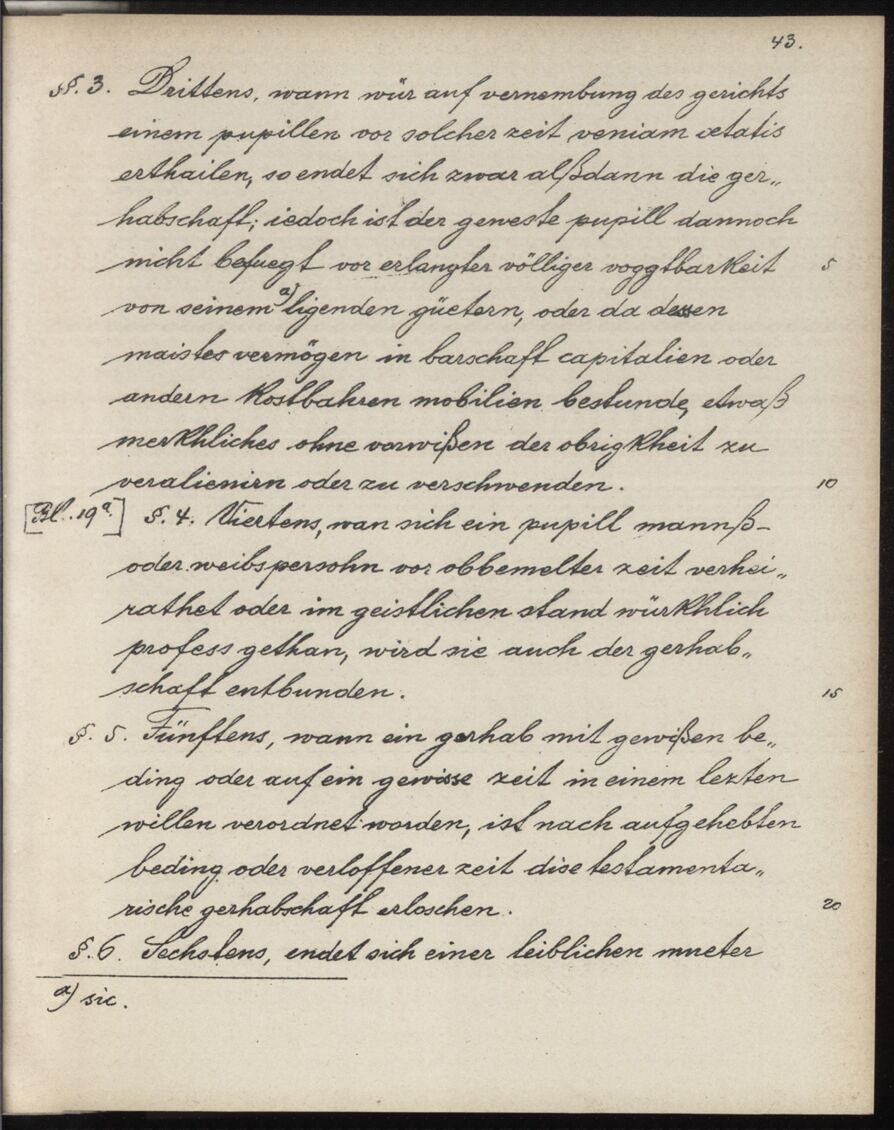 43.
§§. 3. Drittens, wann wür auf vernembung des gerichts
einem pupillen vor solcher zeit veniam aetatis
erthailen, so endet sich zwar alßdann die ger„
habschaft; iedoch ist der geweste pupill dannoch
nicht befuegt vor erlangter völliger voggtbarkeit 5
von seinem a) ligenden güetern, oder da dessen
maistes vermögen in barschaft capitalien oder
andern kostbahren mobilien bestunde, etwaß
merkhliches ohne vorwißen der obrigkheit zu
veralienirn oder zu verschwenden. 10
[Bl. 19a.] §. 4. Viertens, wan sich ein pupill mannß-
oder weibspersohn vor obbemelter zeit verhei„
rathet oder im geistlichen stand würkhlich
profess gethan, wird sie auch der gerhab„
schaft entbunden. 15
§. 5. Fünftens, wann ein gerhab mit gewißen be„
ding oder auf ein gewisse zeit in einem lezten
willen verordnet worden, ist nach aufgehebten
beding oder verloffener zeit dise testamenta„
rische gerhabschaft erloschen. 20
§. 6. Sechstens, endet sich einer leiblichen mueter
a) sic.